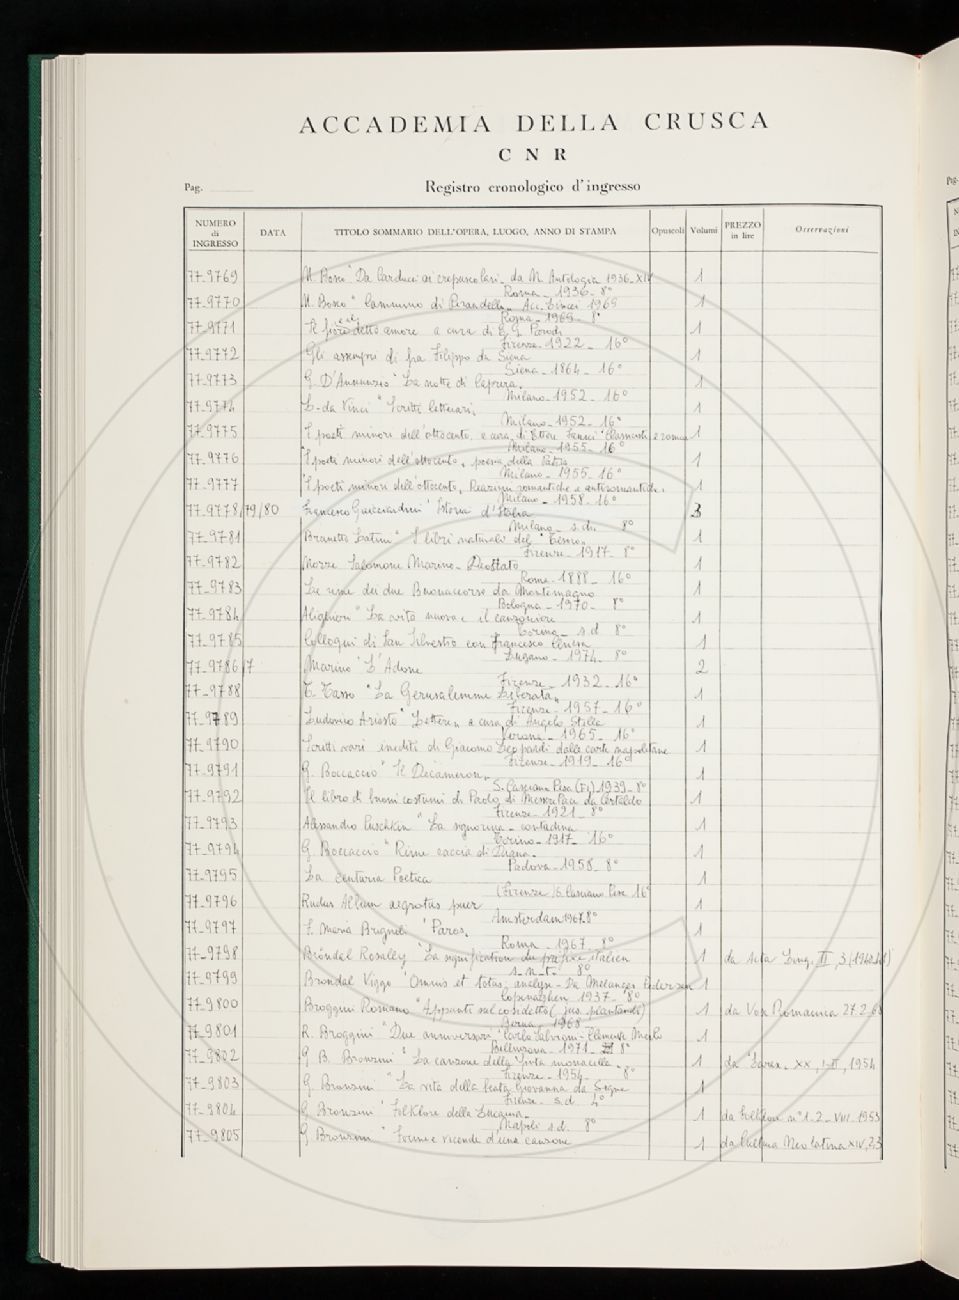 ACCADEMIA DELLA CRUSCA
CNR
Pag.
Registro cronologico d'ingresso
NUMERO di INGRESSO DATA TITOLO SOMMARIO DELL'OPERA, LUOGO, ANNO DI STAMPA Opuscoli Volumi PREZZO in lire Osservazioni
77-9769 U. Bosco "Da Carducci ai crepuscolari da N. Antologia 1936-XIV 1
Roma - 1936 - 8°
77-9770 U. Bosco " Cammino di Pirandello Acc. Lincei 1969 1
Roma - 1969 - 8°
77-9771 Il fiore detto amore a cura di E. G. Parodi 1
Firenze - 1922 - 16°
77-9772 Gli assempri di fra Filippo da Siena 1
Siena - 1864 - 16°
77-9773 G. D'Annunzio "La notte di Caprera" 1
Milano - 1952 - 16°
77-9774 L. da Vinci "Scritti letterari" 1
Milano - 1952 - 16°
77-9775 I poeti minori dell'ottocento a cura di Ettore Janni "Classicisti e roman 1
Milano - 1955 - 16°
77-9776 "I poeti minori dell'ottocento, poesia della Patria 1
Milano - 1955 - 16°
77-9777 "I poeti minori dell'ottocento, Reazioni romantiche e antiromantiche. 1
Milano - 1958 - 16°
77-9778/79/80 Francesco Guicciardini "Storia d'Italia 3
Milano - s.d. 8°
77-9781 Brunetto Latini "I libri naturali del "Tesoro" 1
Firenze - 1917 - 8°
77-9782 Nozze Salomone Marino - Deostato 1
Roma - 1888 - 16°
77-9783 Le rime dei due Buonaccorso da Montemagno 1
Bologna - 1970 - 8°
77-9784 Alighieri "La vita nuova e il canzoniere 1
Torino - s.d. 8°
77-9785 Colloqui di San Silvestro con Francesco Chiesa 1
Lugano - 1974 - 8°
77-9786/7 Marino "L'Adone 2
Firenze - 1932 - 16°
77-9788 T. Tasso "La Gerusalemme Liberata" 1
Firenze - 1957 - 16°
77-9789 Ludovico Ariosto "Lettere" a cura di Angelo Stella 1
Verona - 1965 - 16°
77-9790 Scritti vari inediti di Giacomo Leopardi dalle carte napoletane 1
Firenze - 1919 - 16°
77-9791 G. Boccaccio "Il Decameron" 1
S. Casciano Pesa (Fi) 1939 - 8°
77-9792 Il libro di buoni costumi di Paolo di Messer Pace da Certaldo 1
Firenze - 1921 - 8°
77-9793 Alessandro Puschkin "La signorina - contadina 1
Torino - 1917 - 16°
77-9794 G. Boccaccio "Rime caccia di Diana" 1
Padova - 1958 - 8°
77-9795 La Centuria Poetica 1
(Firenze) S. Casciano Pesa 16°
77-9796 Rudus Allium aegrotus puer 1
Amsterdam 1967 8°
77-9797 F. Maria Brignoli "Paros" 1
Roma - 1967 - 8°
77-9798 Bröndal Rosally "La signification du préfixe italien 1 da Acta Ling. II, 3 (1940-41)
s.n.t. 8°
77-9799 Brondal Viggo "Omnis et totus analyse - Da Mélanges Pedersen 1
Copenaghen 1937 - 8°
77-9800 Broggini Romano "Appunti sul cosiddetto (jus plantandi) 1 da Vox Romanica 27.2.68
Berna, 1968
77-9801 R. Broggini "Due anniversari "Carlo Salvioni - Clemente Merlo 1
Bellinzona - 1971 - 8°
77-9802 G. B. Bronzini "La canzone della "finta monacella" 1 da "Lares" XX, I-II, 1954
Firenze - 1954 - 8°
77-9803 G. Bronzini "La vita della beata Giovanna da Signa 1
Firenze - s.d. 4°
77-9804 G. Bronzini "Folklore della Lucania" 1 da Folklore n° 1-2 - VIII 1953
Napoli s.d. 8°
77-9805 G. Bronzini "Forme e vicende d'una canzone 1 da Cultura Neolatina XIV, 2,3